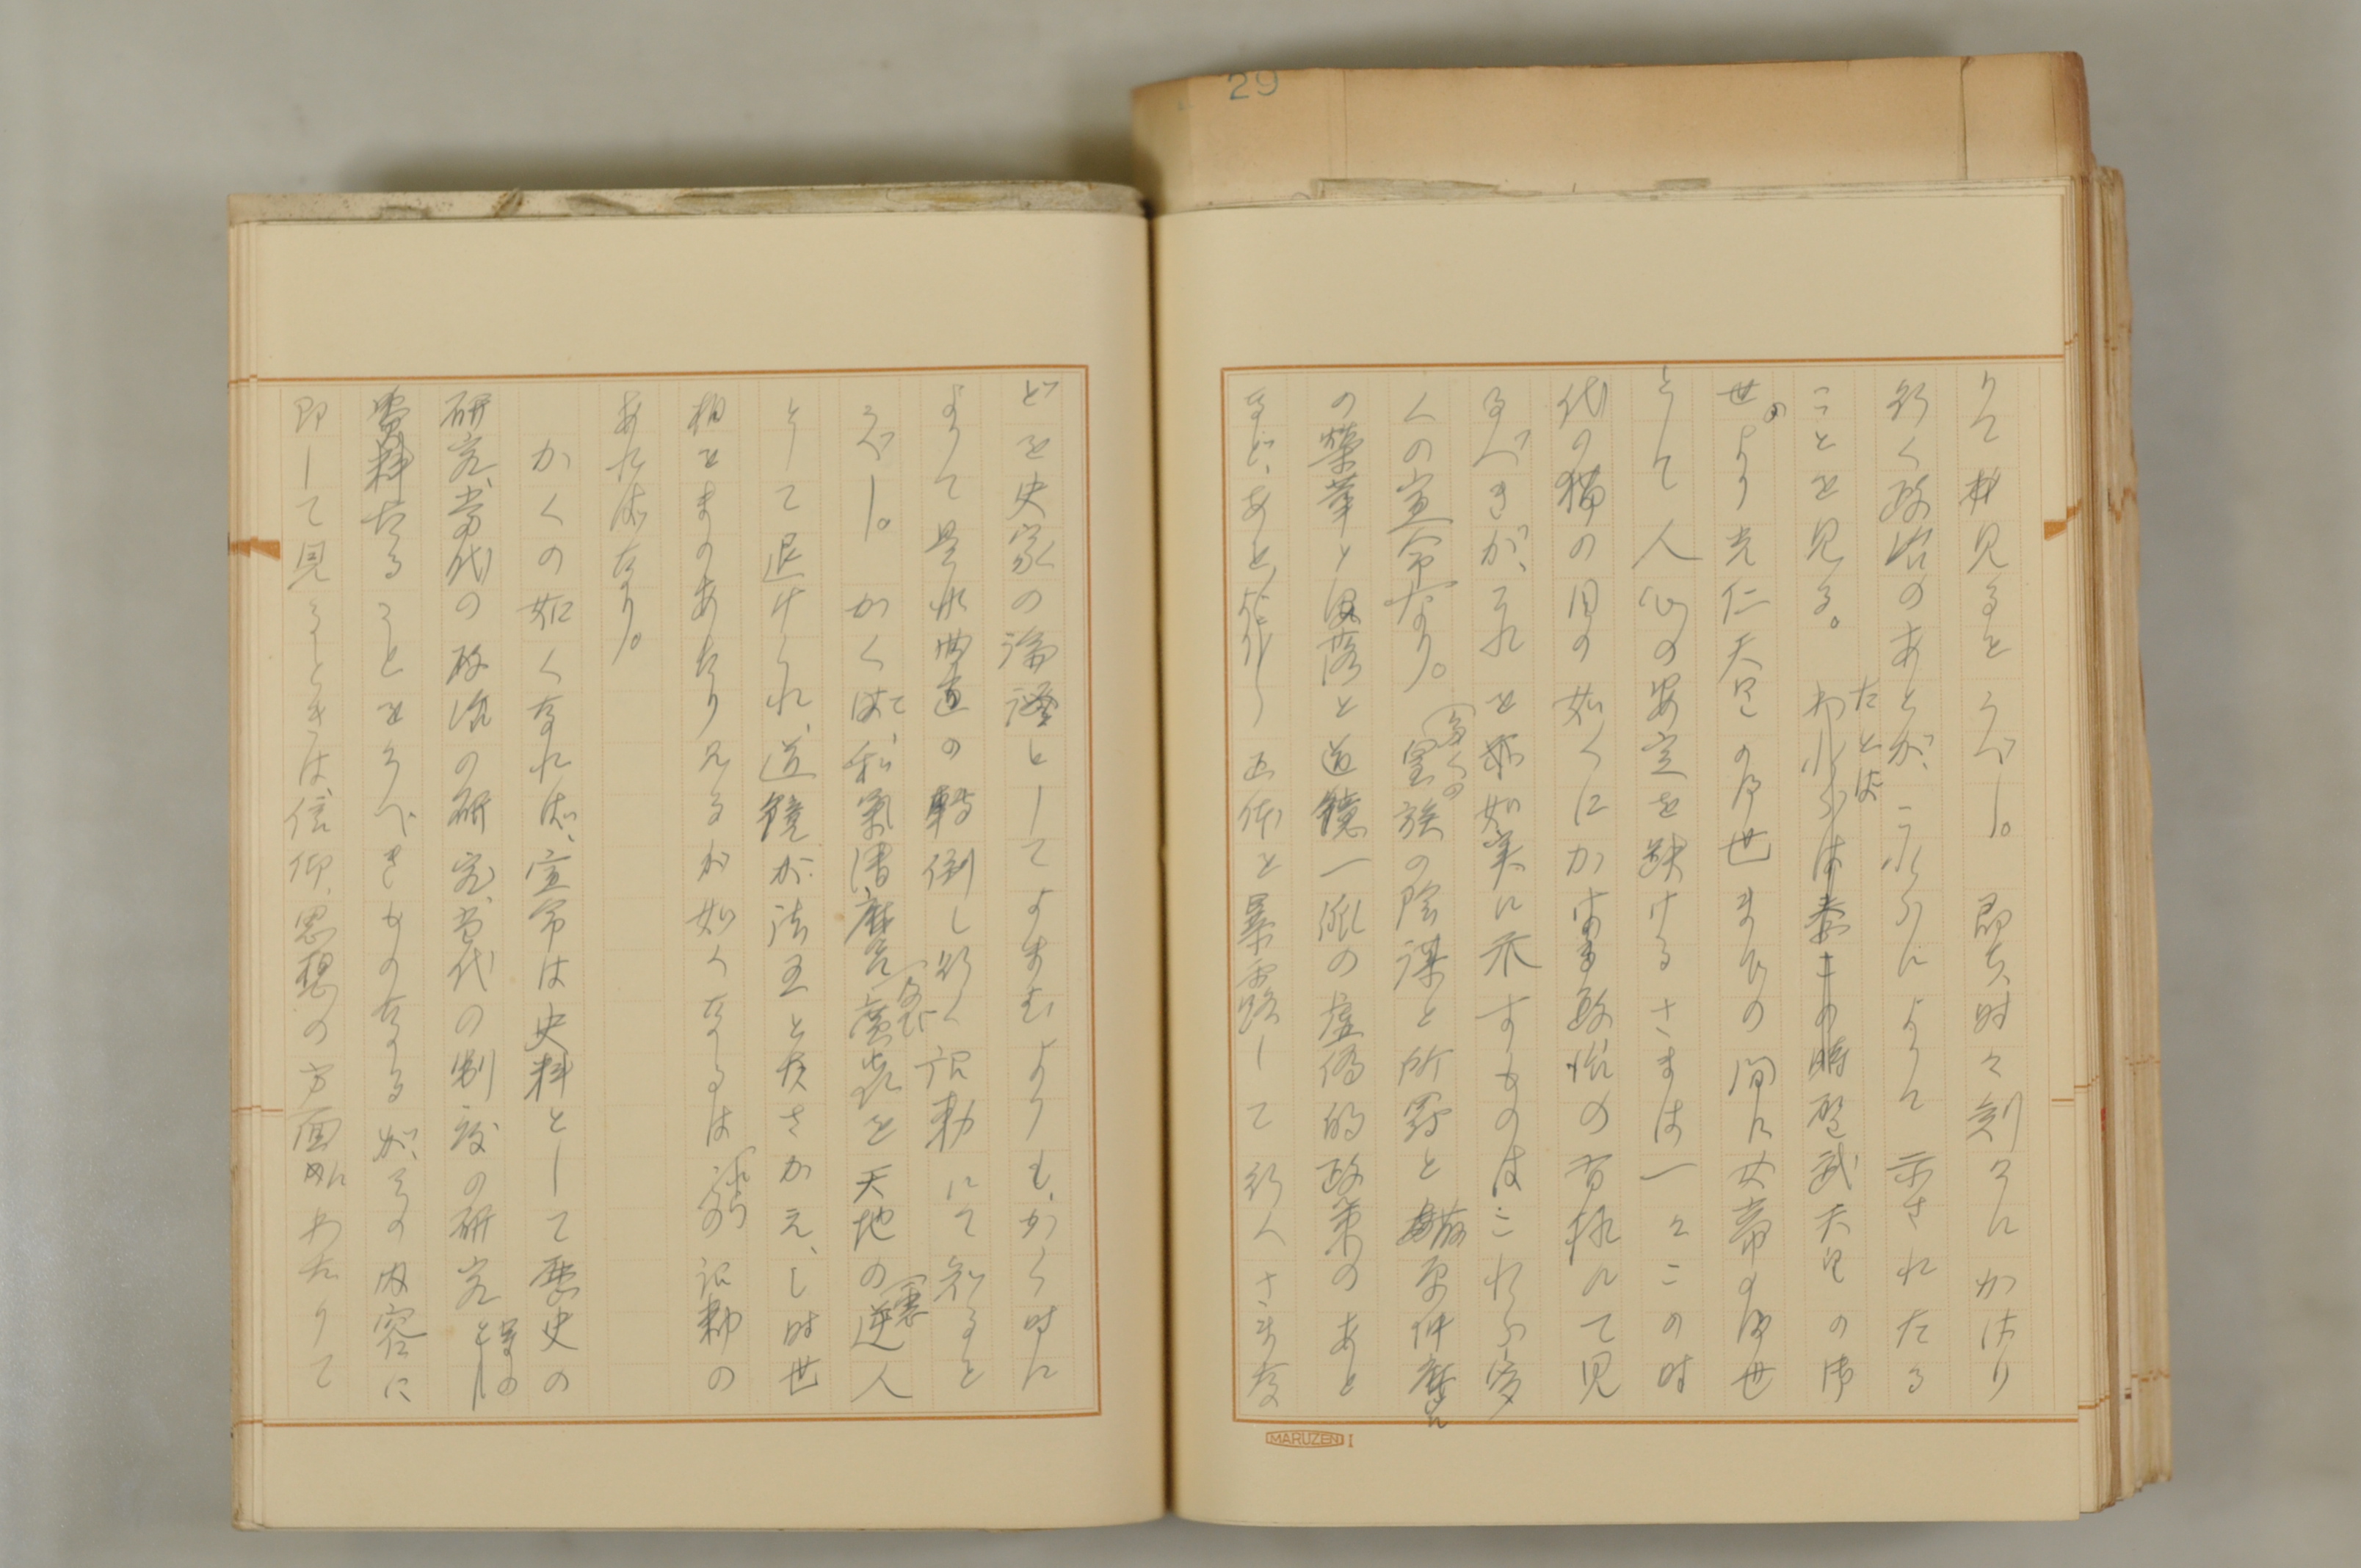 29
りて拝見るとうべし。即ち、時々刻々にかはり
行く政治のあとが、これらによりて示されたる
ことを見る。たとはば聖武天皇の御
世のより光仁天皇の御世までの間に女帝の御世
として人心の安定を缺けるさまは一々この時
代の猫の目の如くにかはる政治の有様にて見
るべきが、それを最如実に示すものはこれら多
くの宣命なり。多くの皇族の陰謀と所罰と藤原仲麿ら
の榮華と没落と道鏡一派の虚偽的政策のあと
など、あと 正体を暴露して行くさまな
MARUZEN I
どを史家の論證としてよまむよりも、かく時に
よりて是非曲直の轉倒し行く詔勅にて知ると
うべし。かくて、和氣清麿及び廣虫を天地の逆人
として退けられ、道鏡が法王と友さかえし時世
相をまのあたり見るが如くなるはこれらの詔勅の
あればなり。
かくの如くなれば、宣命は史料として歴史の
研究、當代の政治の研究、當代の制度の研究等の
資料たることをうべきものなるが、その内容に
即して見るときは、信仰、思想の方面にわたりて